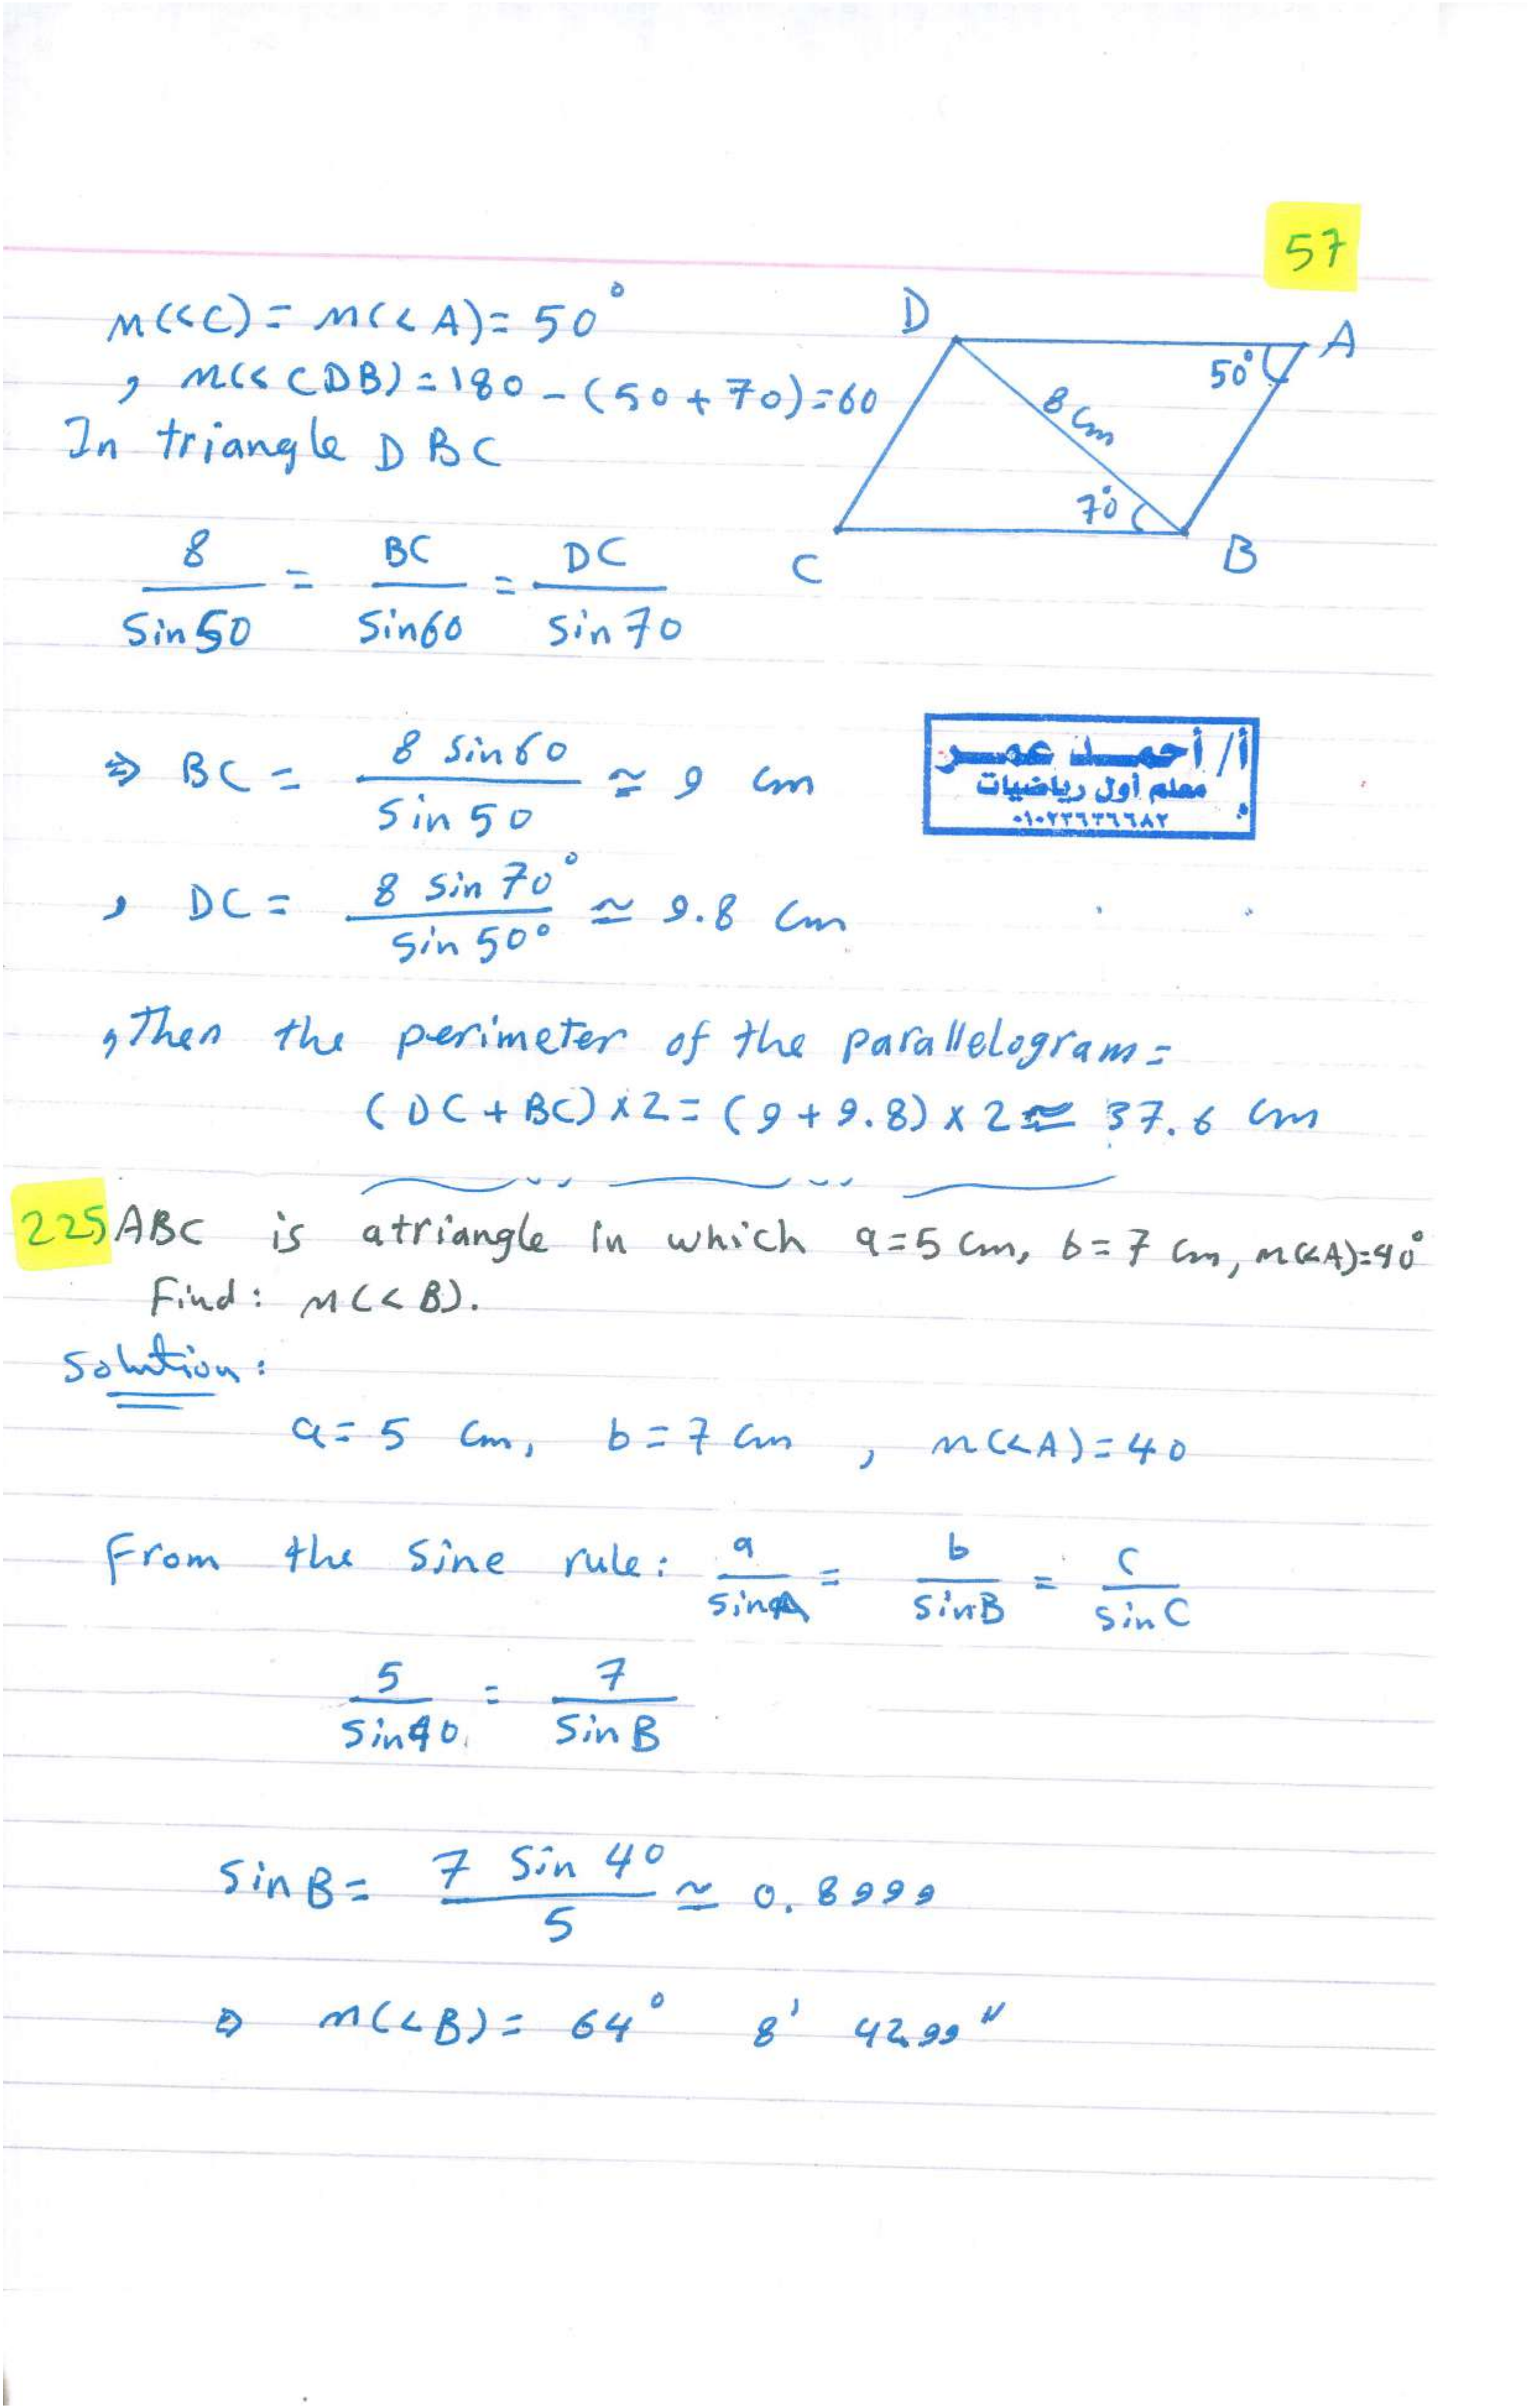 57
m(<C) = m(<A) = 50°
, m(< CDB) = 180 - (50 + 70) = 60
In triangle DBC
D
A
50°
8 cm
70°
C
B
8 / sin 50 = BC / sin 60 = DC / sin 70
⇒ BC = 8 sin 60 / sin 50 ≃ 9 cm
أ/ أحمد عمر
معلم أول رياضيات
, DC = 8 sin 70° / sin 50° ≃ 9.8 cm
, Then the perimeter of the parallelogram =
(DC + BC) × 2 = (9 + 9.8) × 2 ≃ 37.6 cm
225) ABC is a triangle in which a = 5 cm, b = 7 cm, m(<A) = 40°
Find: m(< B).
Solution:
a = 5 cm, b = 7 cm, m(<A) = 40
From the sine rule: a / sin A = b / sin B = c / sin C
5 / sin 40 = 7 / sin B
sin B = 7 sin 40 / 5 ≃ 0.8999
⇒ m(<B) = 64° 8' 42.99"